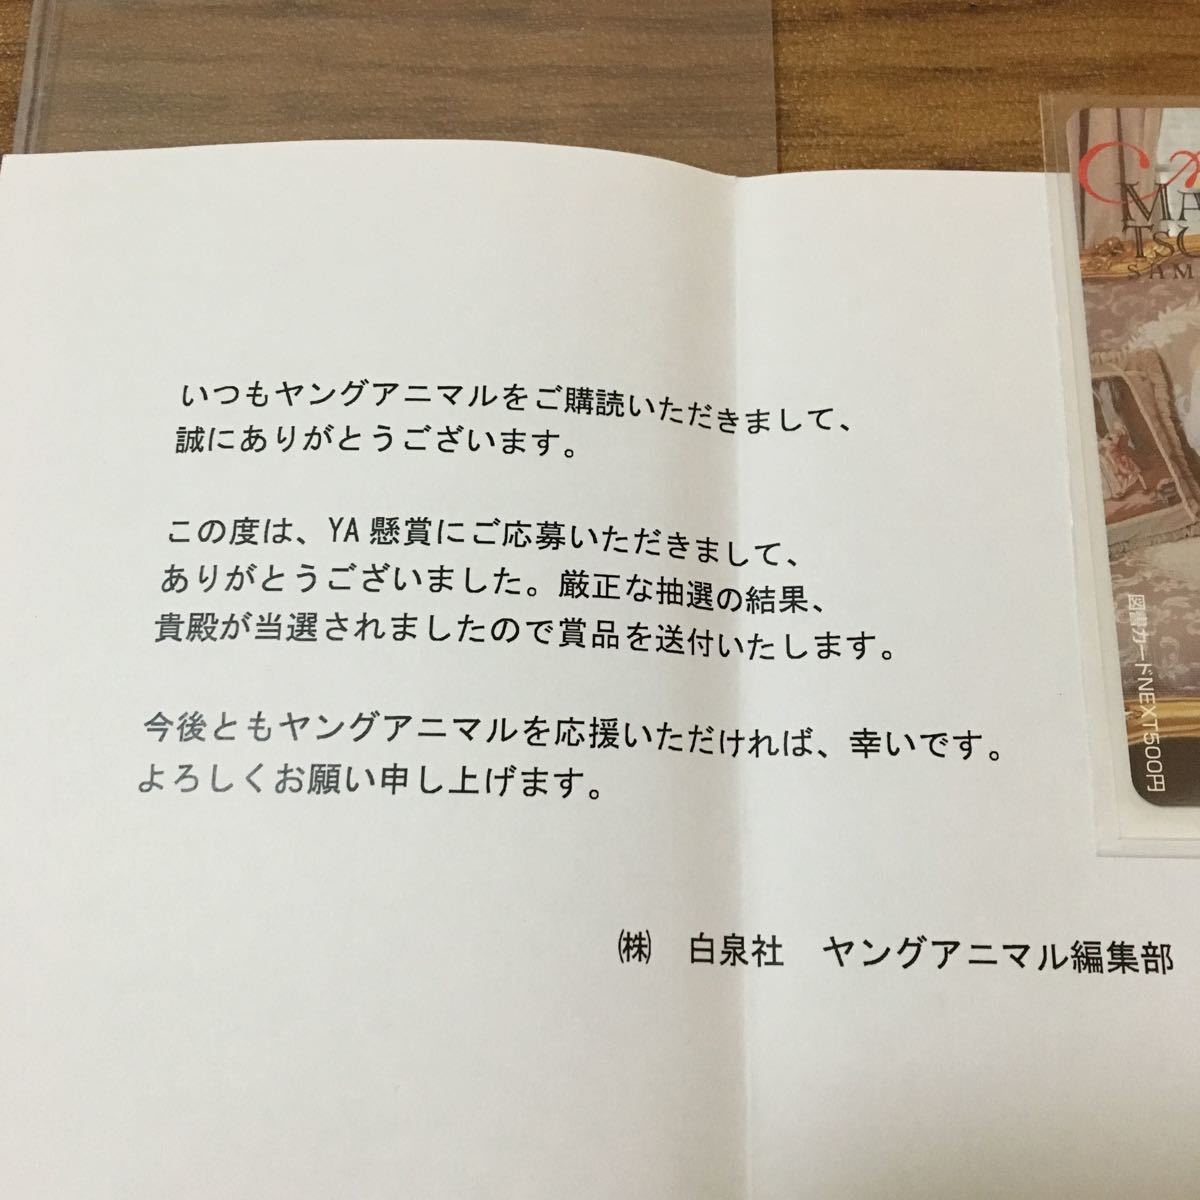 いつもヤングアニマルをご購読いただきまして、
誠にありがとうございます。
この度は、YA懸賞にご応募いただきまして、
ありがとうございました。厳正な抽選の結果、
貴殿が当選されましたので賞品を送付いたします。
今後ともヤングアニマルを応援いただければ、幸いです。
よろしくお願い申し上げます。
㈱ 白泉社 ヤングアニマル編集部
MA
TSU
SAM
図書カードNEXT500円